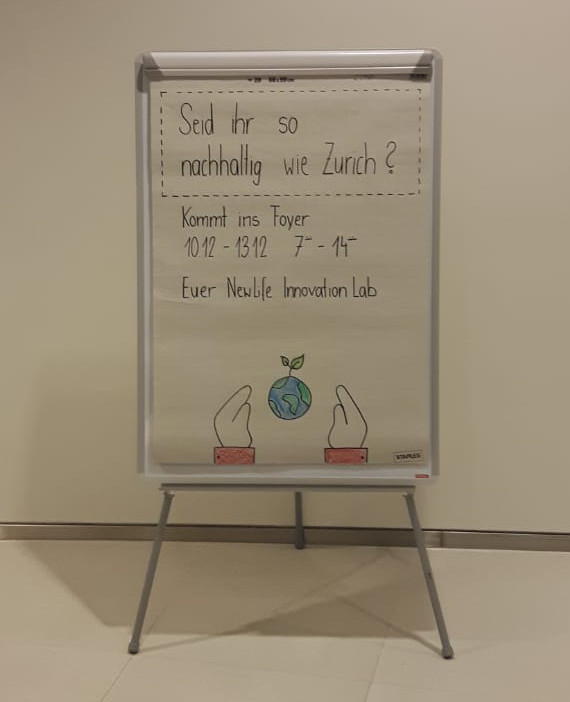 Seid ihr so
nachhaltig wie Zurich?
Kommt ins Foyer
10.12 - 13.12 7⁰⁰ - 14⁰⁰
Euer NewLife Innovation Lab
STAPLES